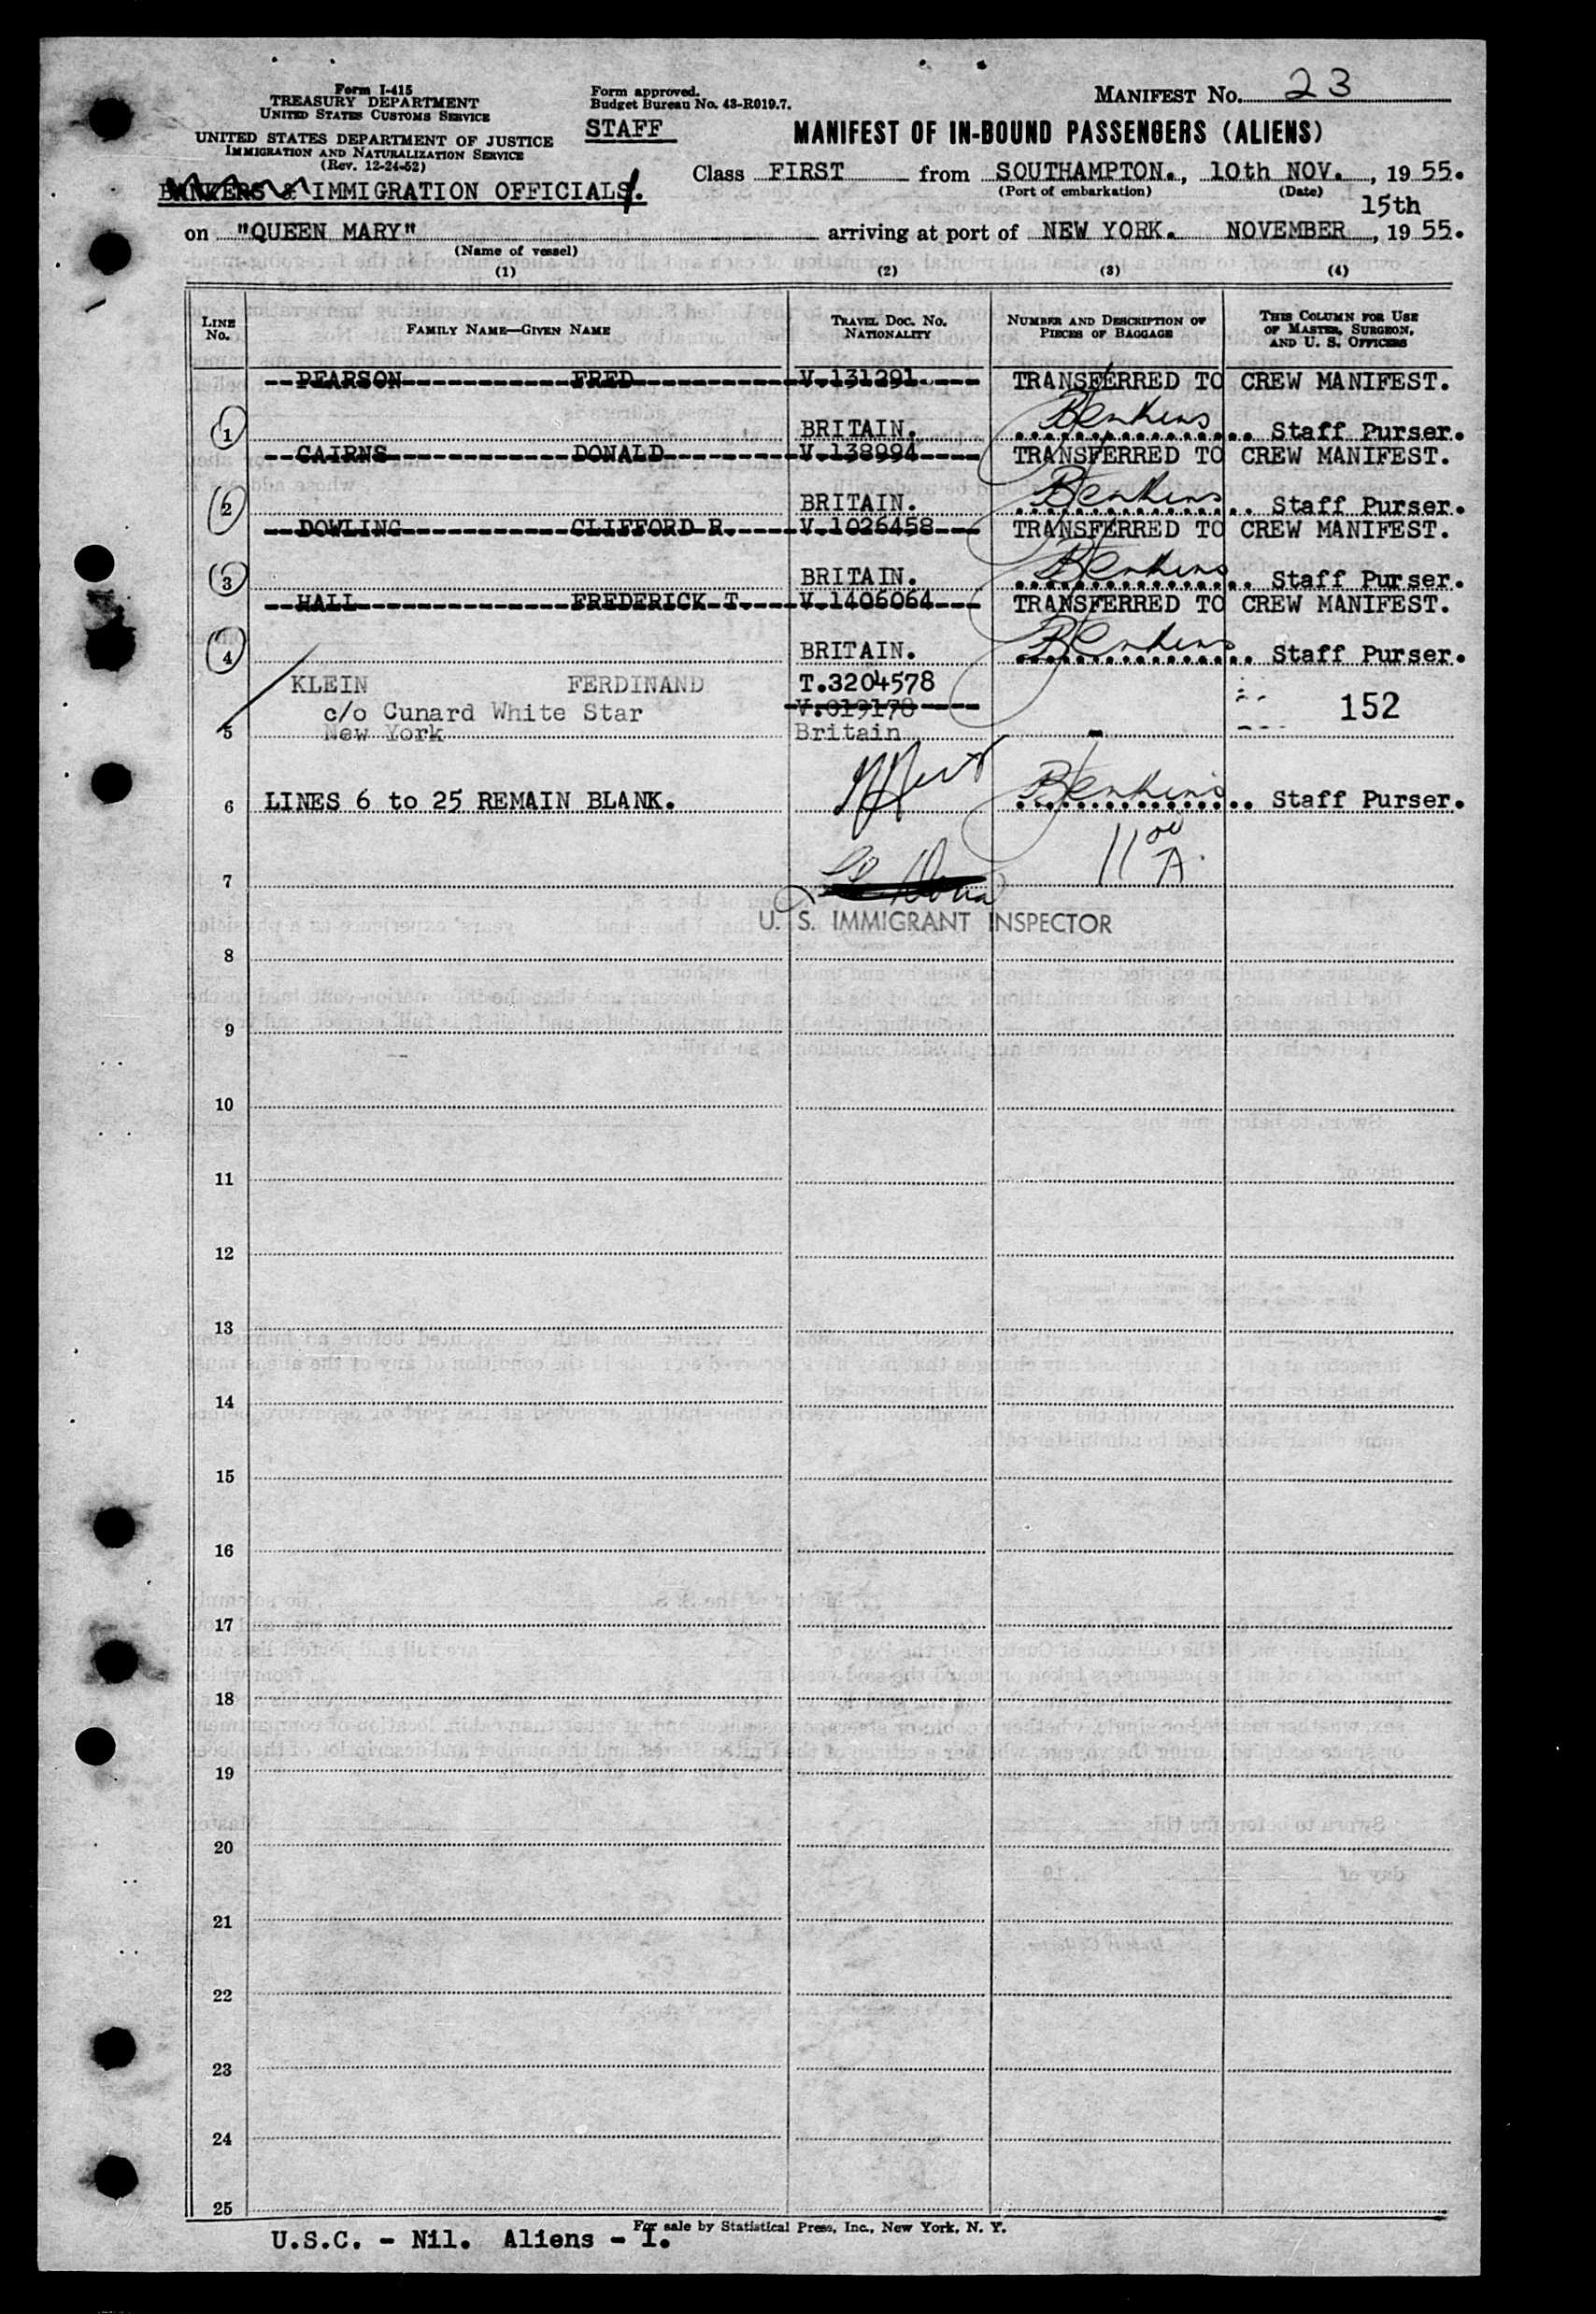 Form I-415
TREASURY DEPARTMENT
UNITED STATES CUSTOMS SERVICE
UNITED STATES DEPARTMENT OF JUSTICE
IMMIGRATION AND NATURALIZATION SERVICE
(Rev. 12-24-52)
BANKERS & IMMIGRATION OFFICIALS.
Form approved.
Budget Bureau No. 43-R019.7.
STAFF
MANIFEST No. 23
MANIFEST OF IN-BOUND PASSENGERS (ALIENS)
Class FIRST from SOUTHAMPTON., 10th NOV., 1955.
(Port of embarkation) (Date)
15th
on "QUEEN MARY" arriving at port of NEW YORK. NOVEMBER, 1955.
(Name of vessel)
(1) (2) (3) (4)
LINE No. FAMILY NAME—GIVEN NAME TRAVEL DOC. NO. NATIONALITY NUMBER AND DESCRIPTION OF PIECES OF BAGGAGE THIS COLUMN FOR USE OF MASTER, SURGEON, AND U. S. OFFICERS
--PEARSON-----------FRED----------V.131291.---- TRANSFERRED TO CREW MANIFEST.
1 BRITAIN. Staff Purser.
--CAIRNS------------DONALD--------V.138994---- TRANSFERRED TO CREW MANIFEST.
2 BRITAIN. Staff Purser.
--DOWLING-----------CLIFFORD R.----V.1026458--- TRANSFERRED TO CREW MANIFEST.
3 BRITAIN. Staff Purser.
--HALL--------------FREDERICK T.----V.1406064--- TRANSFERRED TO CREW MANIFEST.
4 BRITAIN. Staff Purser.
KLEIN FERDINAND T.3204578
c/o Cunard White Star V.019178 152
5 New York Britain
6 LINES 6 to 25 REMAIN BLANK. Staff Purser.
11 00 A.
7
U. S. IMMIGRANT INSPECTOR
8
9
10
11
12
13
14
15
16
17
18
19
20
21
22
23
24
25
For sale by Statistical Press, Inc., New York, N. Y.
U.S.C. - Nil. Aliens - 1.